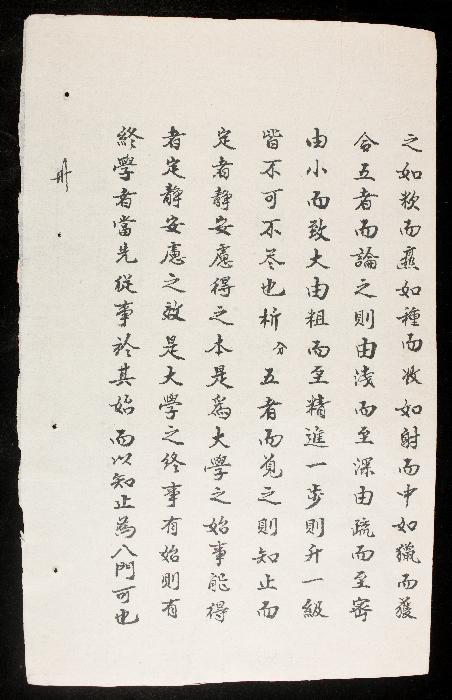 之如炊而爨如種而收如射而中如獵而獲
合五者而論之則由浅而至深由疏而至密
由小而致大由粗而至精進一步則升一級
皆不可不尽也析分五者而覓之則知止而
定者靜安慮得之本是爲大學之始事能得
者定靜安慮之效是大學之終事有始則有
終學者當先從事於其始而以知止為入門可也